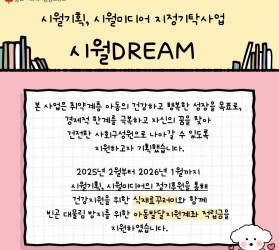 시월기획, 시월미디어 지정기탁사업
시월DREAM
본 사업은 취약계층 아동의 건강하고 행복한 성장을 목표로,
경제적 한계를 극복하고 자신의 꿈을 찾아
건전한 사회구성원으로 나아갈 수 있도록
지원하고자 기획했습니다.
2025년 2월부터 2026년 1월까지
시월기획, 시월미디어의 정기후원을 통해
건강지원을 위한 식재료꾸러미와 함께
빈곤 대물림 방지를 위한 아동발달지원계좌 적립금을
지원하였습니다.